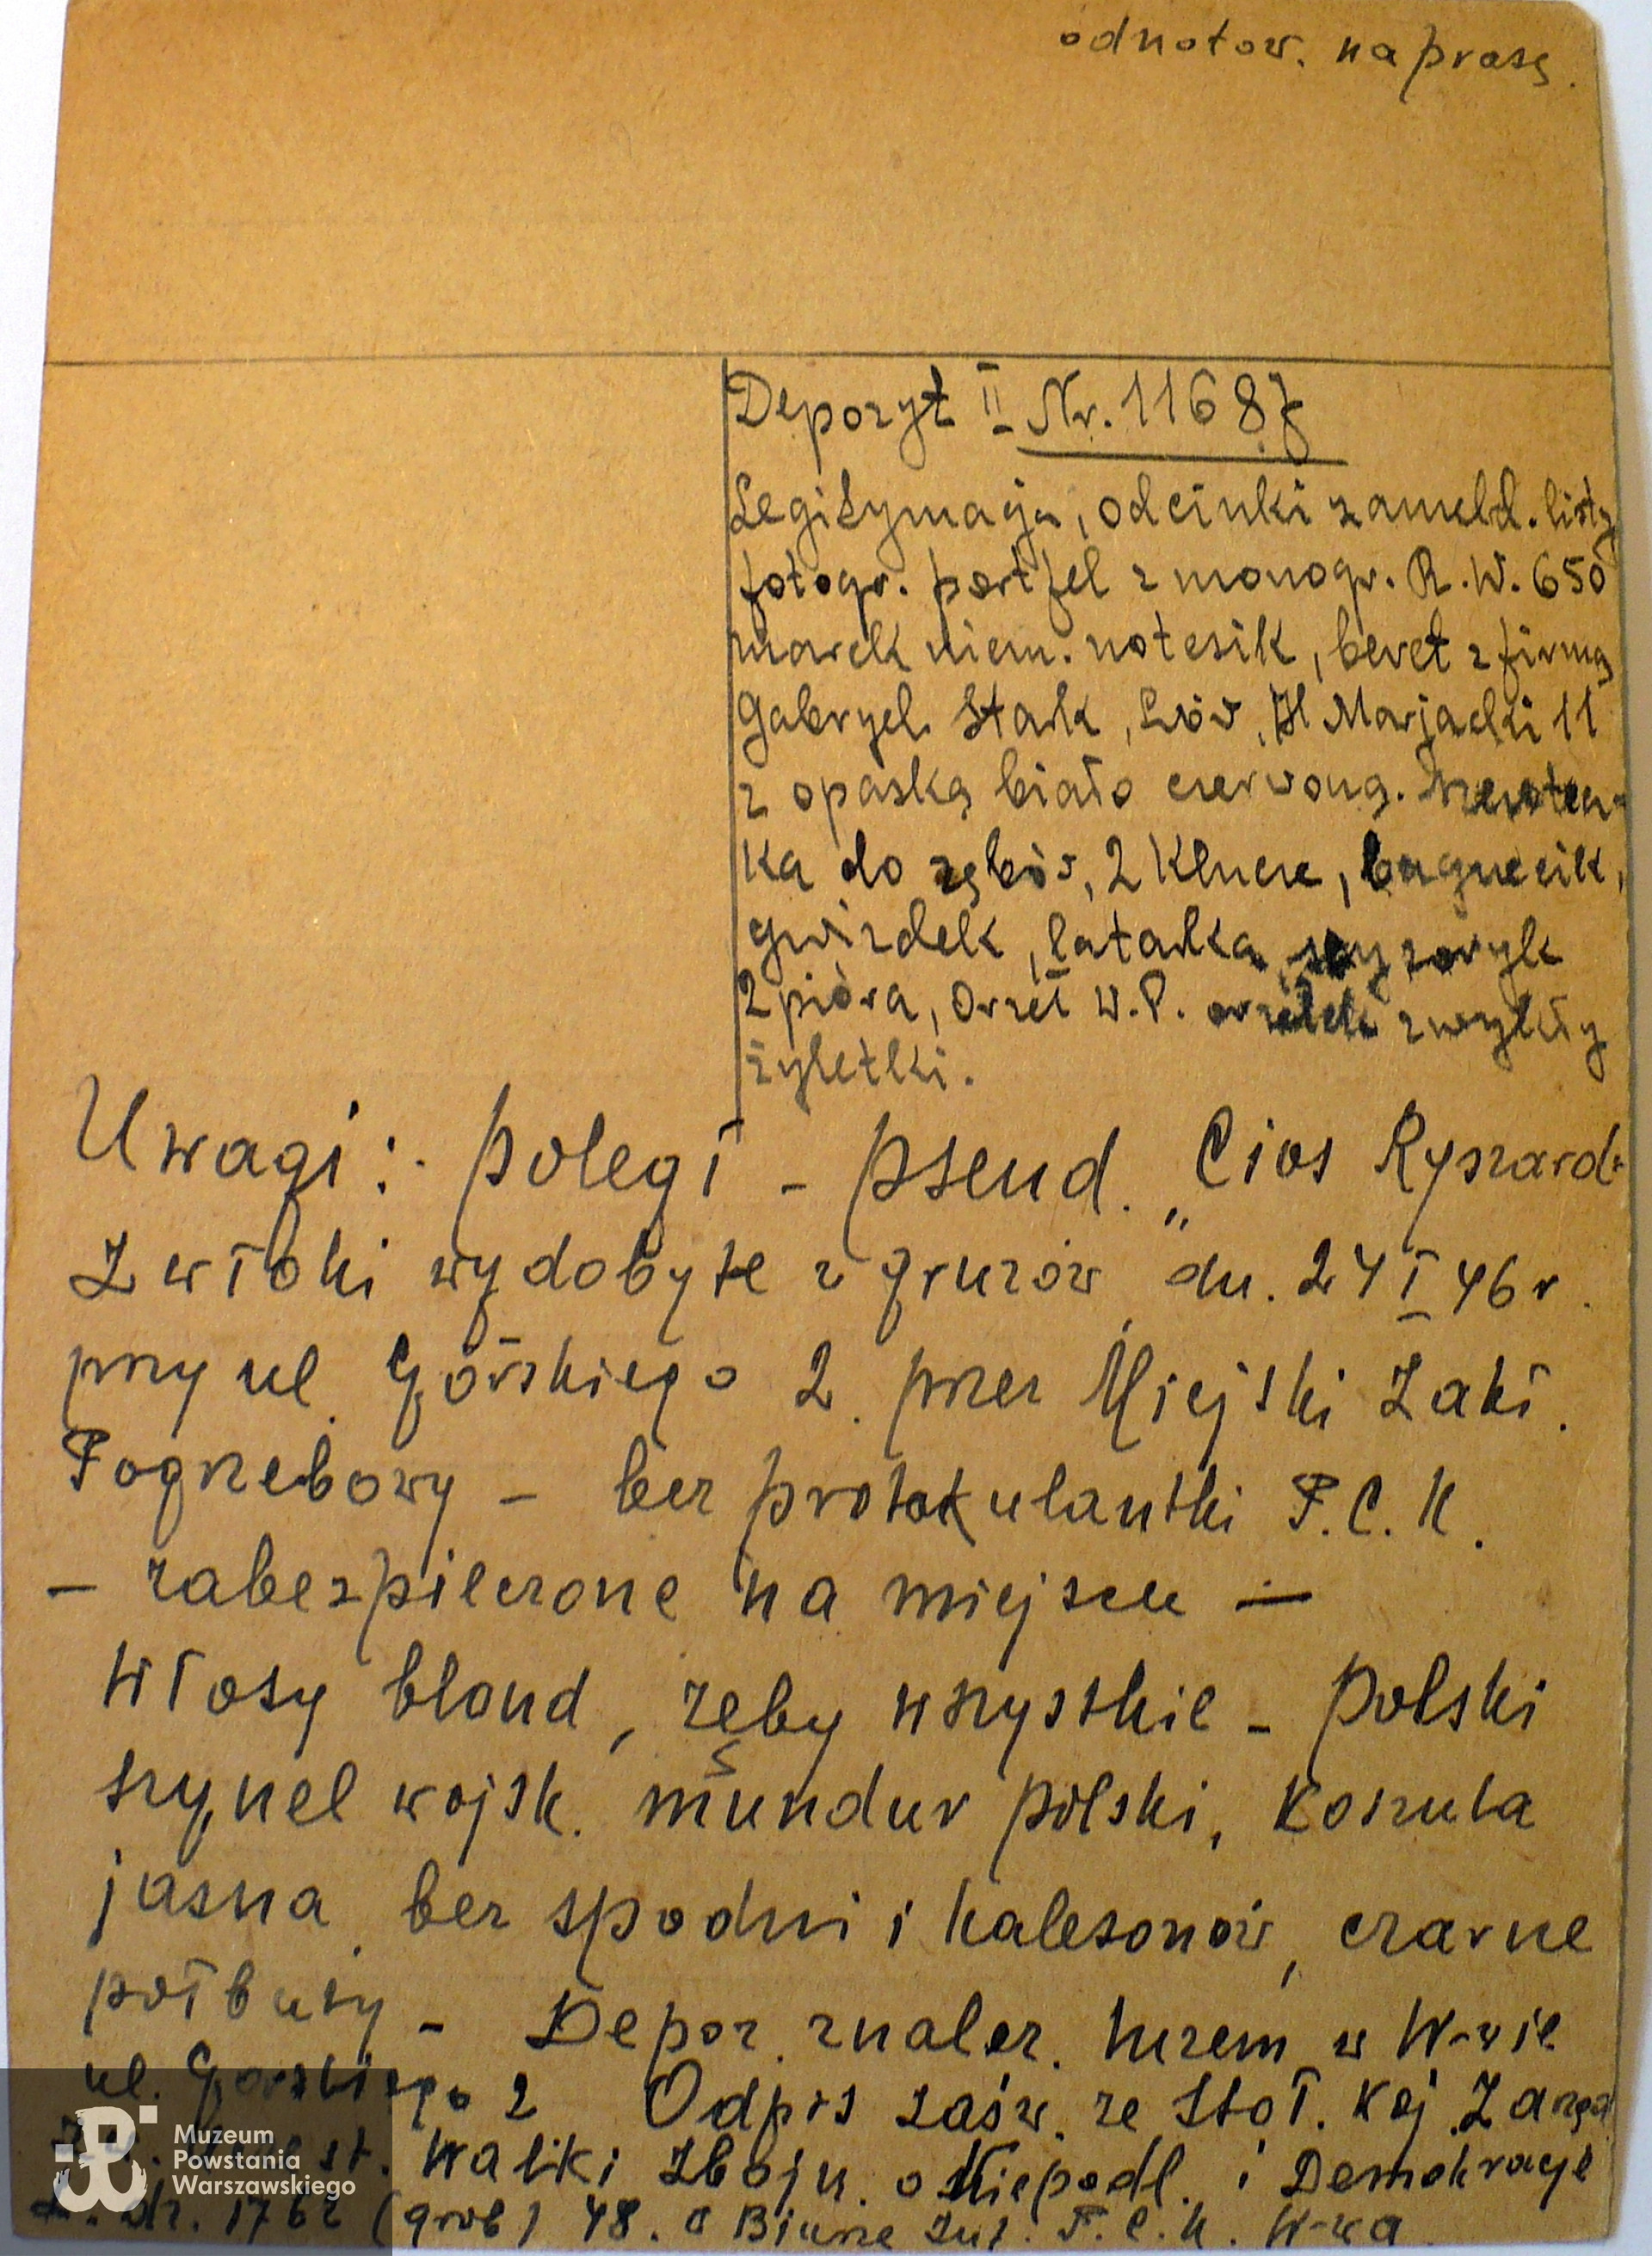 odnotow. na prasę.
Depozyt II Nr. 11687
Legitymacja, odcinki zameld. listy
fotogr. portfel z monogr. R.W. 650
marek niem. notesik, beret z firmą
Gabryel Stark, Lwów, Pl Marjacki 11
z opaską biało czerwoną.
ka do zębów, 2 klucze, bagnecik,
gwizdek, latarka, scyzoryk
2 pióra, Orzeł W.P. orzełek zwykły
żyletki.
Uwagi: poległ - pseud. „Cios Ryszard"
Zwłoki wydobyte z gruzów dn. 24 I 46 r.
przy ul. Górskiego 2. przez Miejski Zakł.
Pogrzebowy - bez protokulantki P.C.K.
- zabezpieczone na miejscu -
Włosy blond, zęby wszystkie - Polski
szynel wojsk. mundur polski, koszula
jasna, bez spodni i kalesonów, czarne
półbuty - Depoz. znalez. w W-wie
ul. Górskiego 2 Odpis zaśw. ze Stoł. Kój. Zarząd
st. Walki Zbojn. o Niepodl. i Demokrację
1762 (grób) 48. o Biurze Inf. P.C.K. W-wa
Muzeum
Powstania
Warszawskiego